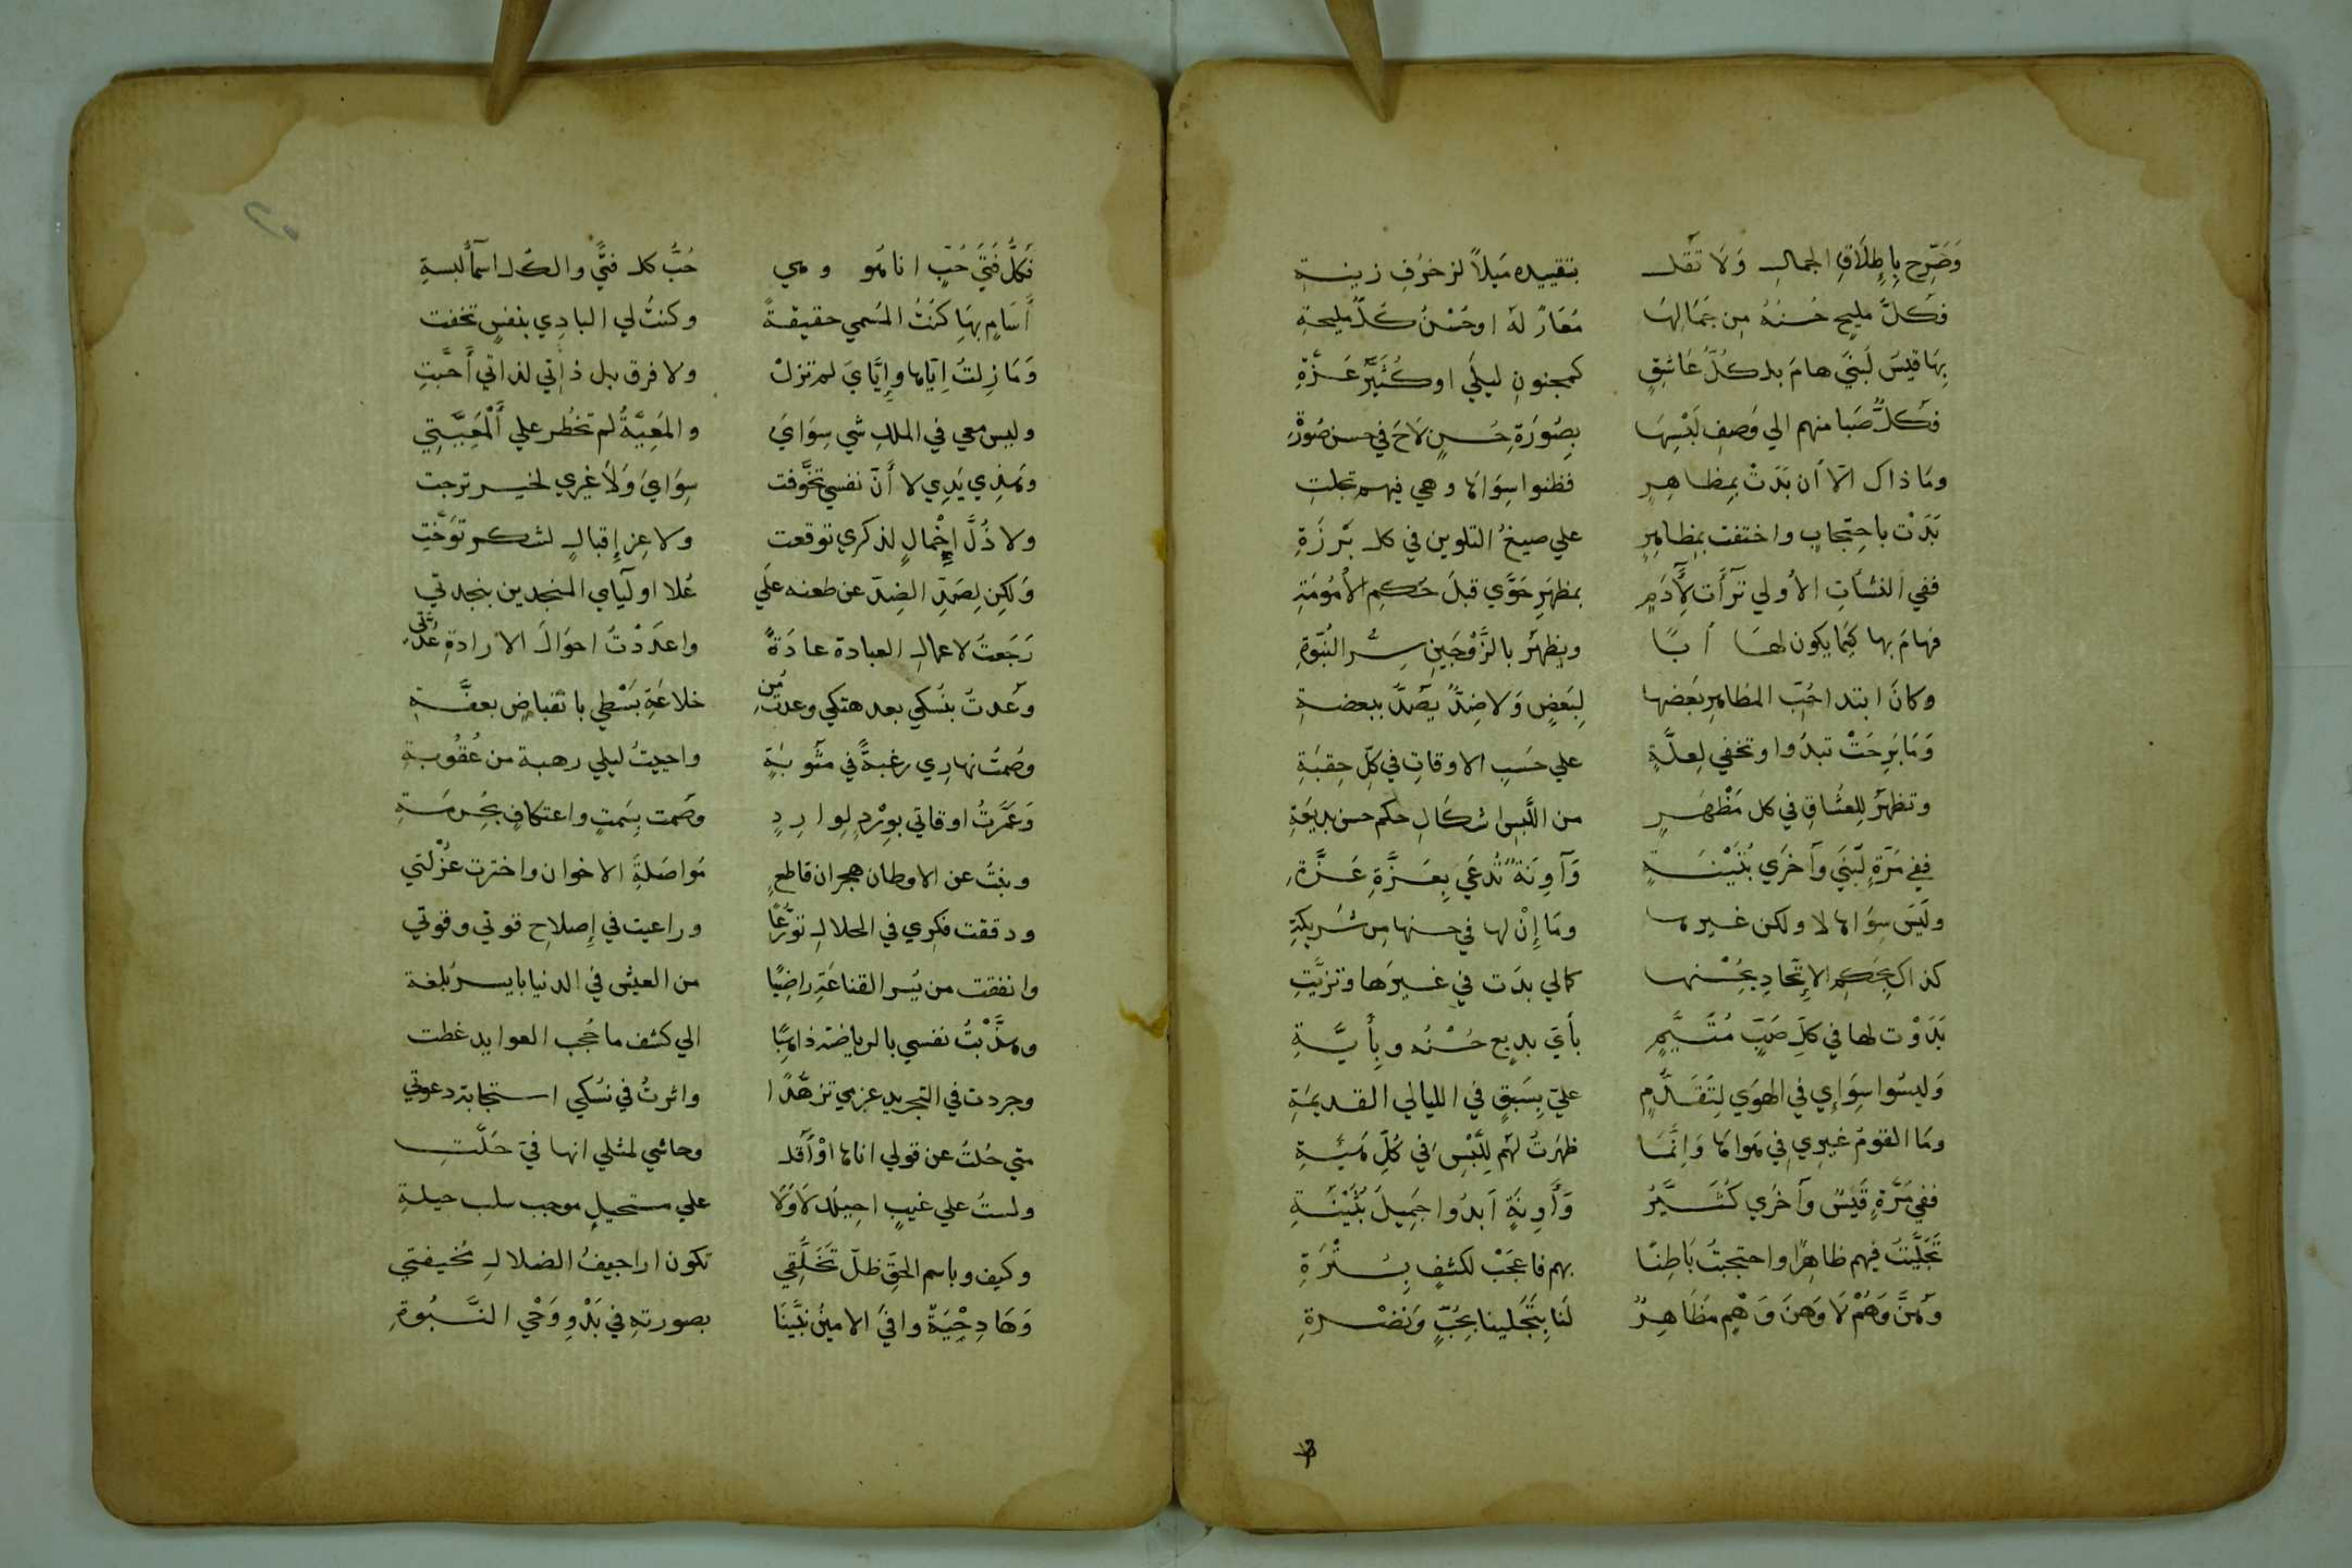 وَصَرِّح بِإِطلَاقِ الجمالِ وَلَا تَقُل بتقييده مَيلاً لزخرُفِ زينةِ
فكلُّ مليحٍ حُسنُهُ مِن جَمَالِهَا مُعَارٌ لهُ او حُسْنُ كلِّ مليحةِ
بِهَا قيسُ لُبنَي هامَ بل كلُّ عَاشقٍ كمجنونِ ليلَي او كُثَيِّر عَزَّةِ
فكلٌّ صَبا منهم الي وَصفِ لَبْسِهَا بِصُورَةِ حُسنٍ لَاحَ في حسن صُورَةِ
ومَا ذاك الّا أن بَدَتْ بمظاهِرٍ فظنوا سِوَاها وهي فيهم تجلتِ
بَدَتْ باحتِجابٍ واختفت بمظاهِرٍ علي صِيَغِ التلوين في كل بَرْزَةِ
ففي النشأتِ الأولي تَرآَت لِآدَمٍ بمظهَرِ حَوَّي قبلَ حُكمِ الأُمُومَةِ
فهامَ بها كَيمَا يكون لها أبًا ويظهَرُ بالزَّوْجَينِ سِرُّ البُنُوَّةِ
وكانَ ابتدا حُبّ المظاهِرِ بَعضها لِبَعضٍ وَلا ضِدٌّ يُصَدُّ ببغضةِ
وَمَا بَرِحَتْ تبدُوا وتخفي لِعلَّةٍ علي حَسَبِ الاوقاتِ في كلِّ حِقبَةِ
وتظهَرُ لِلعُشّاقِ في كل مَظْهَرٍ من اللَّبسِ اشكَالِ حكم حسن بديعَةِ
ففي مَرّةٍ لُبْنَي وأخرَي بُثَيْنَةٍ وَآوِنَةً تُدعَي بِعَزَّةِ عَزَّةِ
ولَيسَ سِوَاها لا ولكن غيرها ومَا إِنْ لها في حسنها مِن شَرِيكَةِ
كذاك بحُكمِ الإِتِّحادِ بحُسْنها كما لي بدَت في غيرَها وتزيَّتِ
بَدَوْت لها في كلِّ صَبٍّ مُتَيَّمٍ بأَيِّ بديعٍ حُسْنُه وبِأَيَّةِ
وَليسُوا سِوَاِي في الهوَي لِتَقَدُّمٍ عليّ بِسَبقٍ في الليالي القديمَةِ
ومَا القومُ غيرِي في هَوَاهَا وَإِنَّمَا ظهَرتُ لهُم لِلَّبْسِ في كُلِّ هَيئَةِ
ففي مَرَّةٍ قَيسٌ وأخرَي كُثَيِّرُ وَأَوِنَةٍ أبدُوا جَمِيلَ بُثَيْنَةِ
تَجَلَّيتُ فيهم ظاهِرًا واحتجبتُ بَاطِنًا بهم فاعجَبْ لكشفٍ بِسُتْرَةِ
وَهُنَّ وَهُمْ لَا وَهنَ وَهْمٍ مَظَاهِرٌ لَنَا بِتَجَلّينا بِحُبٍّ وَنَضْرةِ
فَكُلُّ فَتَي حُبٍّ انا هُو وهي حُبُّ كل فتًي والكل اسمآ لبسةِ
أَسَامٍ بِهَا كنتُ المُسمي حقيقةً وكنتُ لي البادِي بنفسٍ تخفت
وَمَا زِلتُ إيّاها وإِيَّايَ لم تزلْ ولا فرق بل ذاتي لذاتي أحَبَّتِ
وليس معي في الملكِ شي سِوَايَ والمَعِيَّةُ لم تخطُر علي أَلْمَعِيَّتِي
وهذِي يَدِي لا أَنّ نفسي تخَوَّفت سِوَايَ وَلَا غيري لخير ترجت
ولا ذُلَّ إِخْمالٍ لذكري توقعت ولا عِز إقبالٍ لشكر تَوَخَّت
وَلكِن لِصَدِّ الضِدّ عن طعنه علَي عُلا اوليآي المنجدين بنجدتي
رَجَعتُ لاعمالِ العبادة عادَةً واعدَدْتُ احوَالَ الارادةِ عُدَّتي
وعُدتُ بنُسكي بعد هتكي وعدتُ من خلاعَةِ بَسْطِي بانقباضٍ بعفَّةِ
وصُمتُ نهارِي رغبةً في مثُوبَةٍ واحييتُ ليلي رهبة من عُقُوبةِ
وَعَمَّرتُ اوقاتي بوِرْدٍ لِوارِدٍ وصَمتٍ بِسَمتٍ واعتكافٍ بحُرمَةِ
وبنتُ عن الاوطان هجران قاطعٍ مُواصَلةِ الاخوان واخترت عُزْلتي
ودققت فكرِي في الحلالِ تورُّعًا وراعيت في إِصلاح قوتي وقوتي
وانفقت من يُسر القناعَةِ راضِيًا من العيش في الدنيا بايسر بُلغة
وهذَّبْتُ نفسي بالرياضة ذاهِبًا الي كشف ما حُجب العوايد غطت
وجردت في التجريد عزمي تزهُّدًا واثرتُ في نُسكي استجابة دعوتي
متي حُلتُ عن قولي اناها اوْ أقل وحاشي لمثلي انها فيَ حَلَّتِ
ولستُ علي غيبٍ احِيلك لَا وَلَا علي مستحيلٍ موجب سلب حيلةِ
وكيف وباسم الحقِّ ظلّ تَخَلُّقِي تكون اراجيفُ الضلالِ مُخيفتي
وَهَا دِحْيَةٌ وافَي الامينُ نبيَّنَا بصورتهِ في بَدْوِ وَحْي النبُوةِ